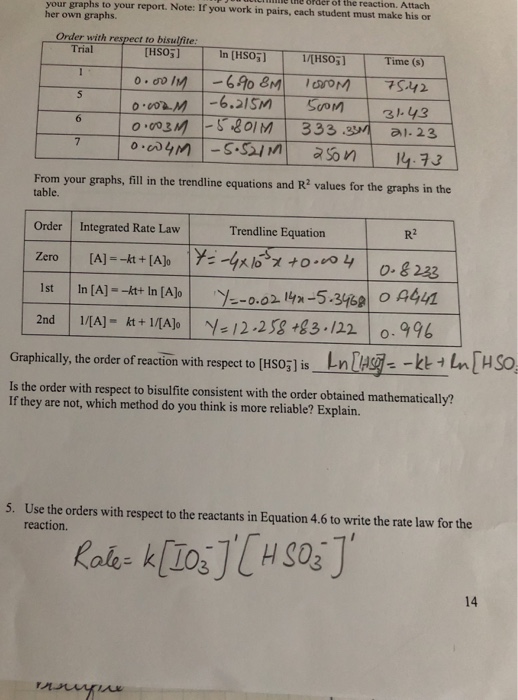 your graphs to your report. Note: If you work in pairs, each student must make his or
the order of the reaction. Attach
her own graphs.
Order with respect to bisulfite:
Trial [HSO₃⁻] ln [HSO₃⁻] 1/[HSO₃⁻] Time (s)
1 0.001M -6.908M 1000M 75.42
5 0.002M -6.215M 500M 31.43
6 0.003M -5.801M 333.33M 21.23
7 0.004M -5.521M 250M 14.73
From your graphs, fill in the trendline equations and R² values for the graphs in the
table.
Order Integrated Rate Law Trendline Equation R²
Zero [A] = -kt + [A]₀ Y=-4x10⁻⁵x+0.004 0.8233
1st ln [A] = -kt+ ln [A]₀ Y=-0.0214x-5.3468 0.9441
2nd 1/[A] = kt + 1/[A]₀ Y=12.258+83.122 0.996
Graphically, the order of reaction with respect to [HSO₃⁻] is Ln[HSO₃⁻]=-kt+Ln[HSO₃
Is the order with respect to bisulfite consistent with the order obtained mathematically?
If they are not, which method do you think is more reliable? Explain.
5. Use the orders with respect to the reactants in Equation 4.6 to write the rate law for the
reaction.
Rate= k[IO₃⁻]'[HSO₃⁻]'
14